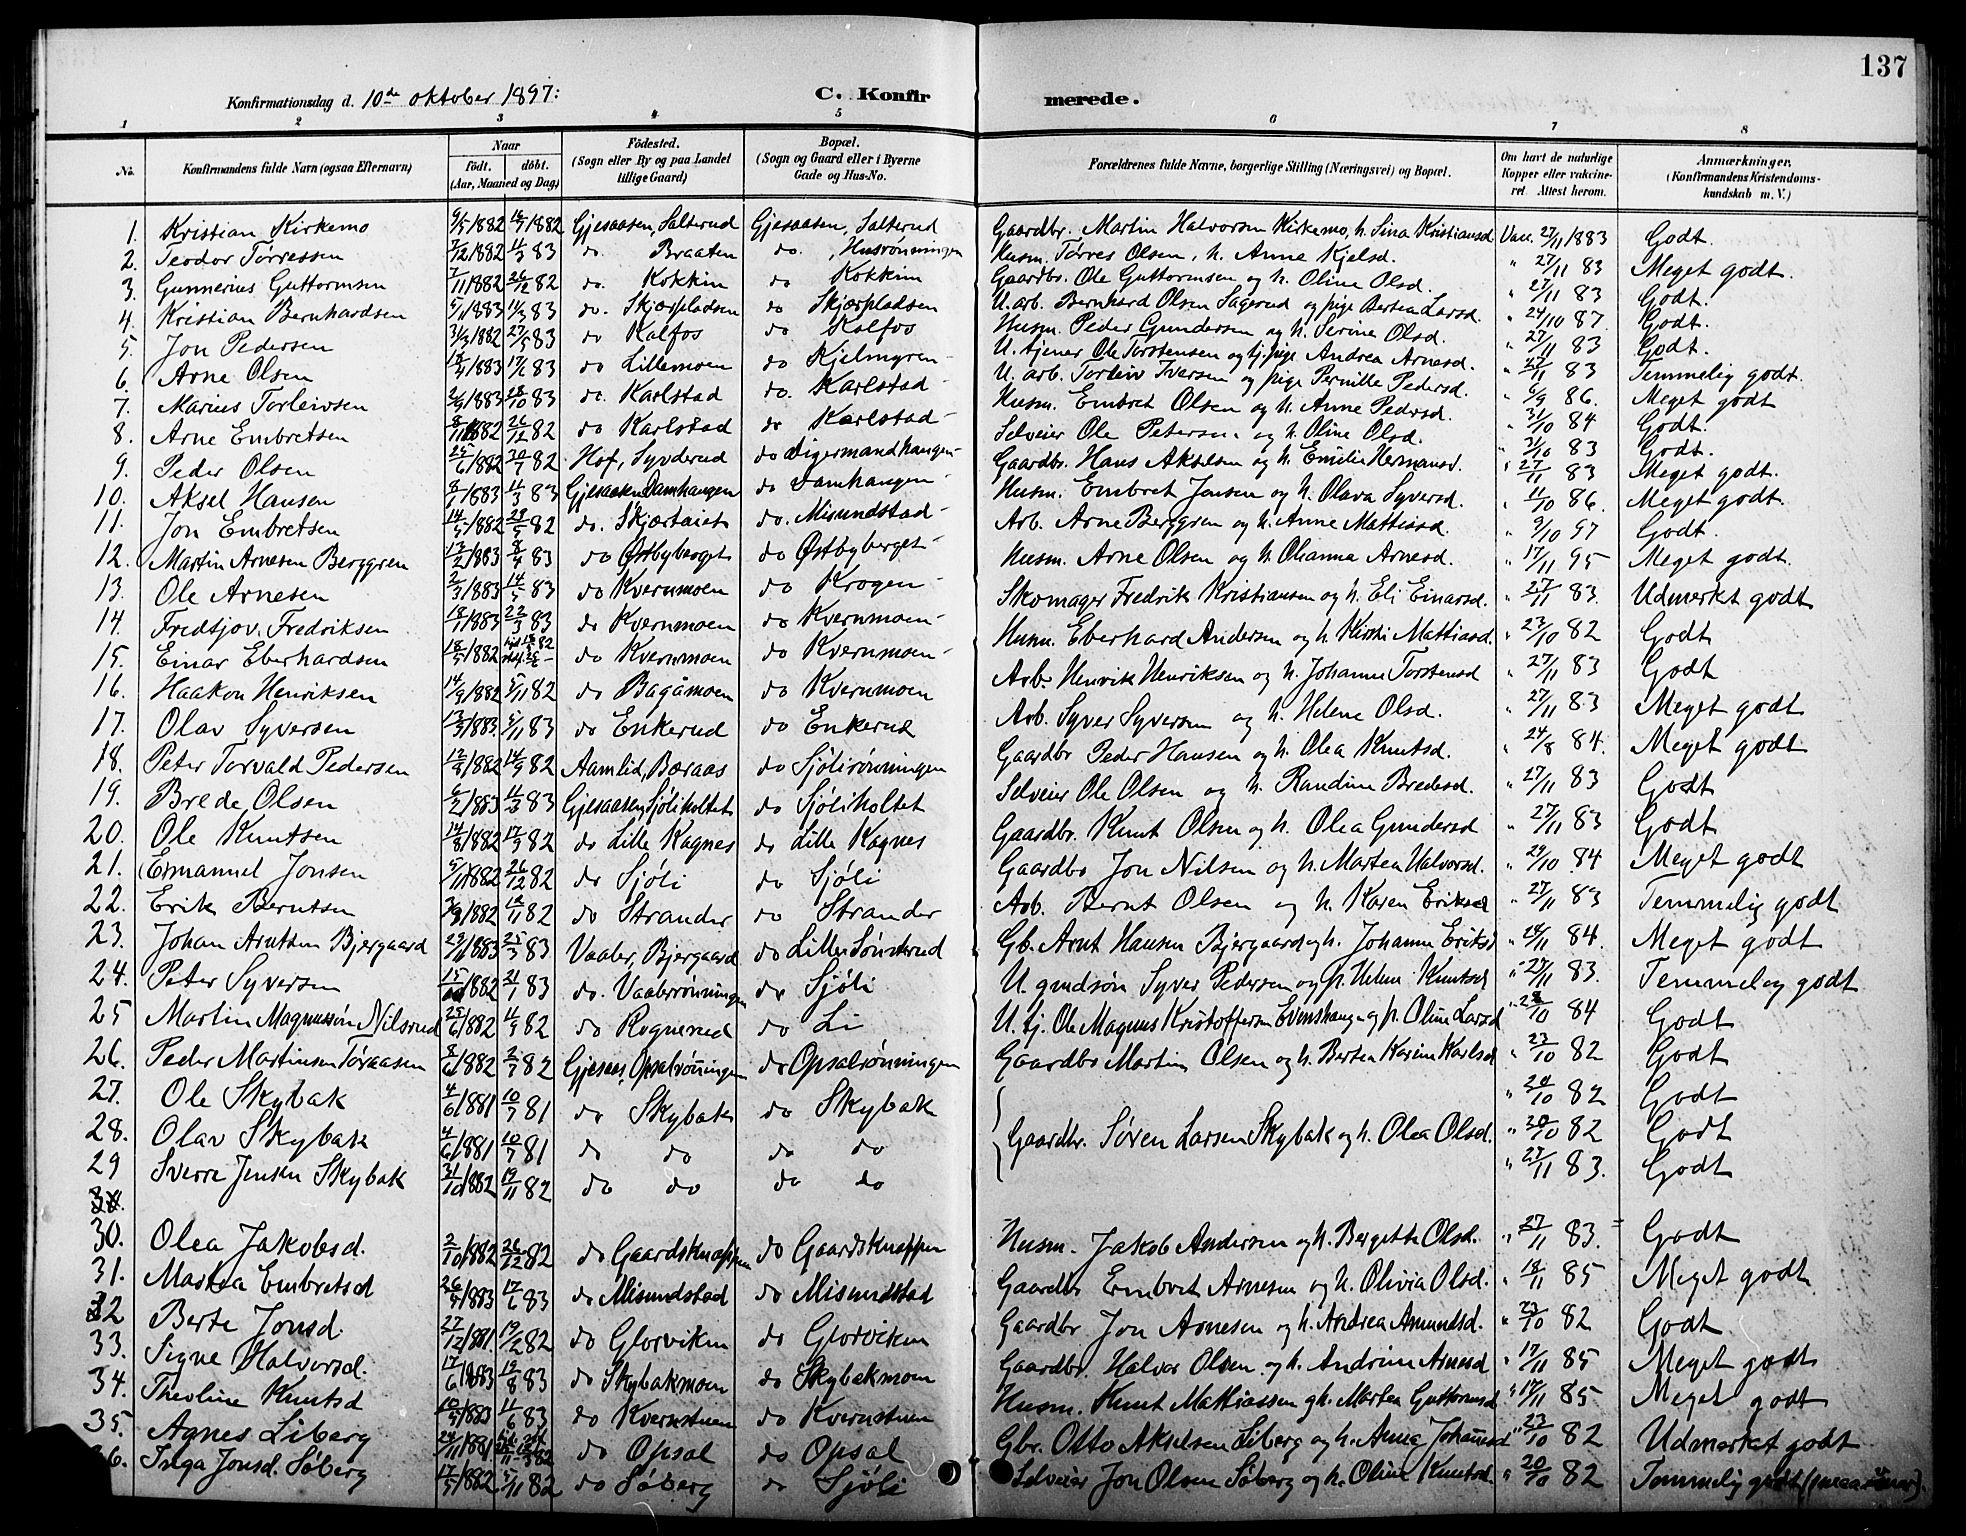 137
Konfirmationsdag d. 10de oktober 1897: C. Konfirmerede.
1 2 3 4 5 6 7 8
No. Konfirmandens fulde Navn (ogsaa Efternavn) Naar Födt. döbt. (Aar, Maaned og Dag) Födested. (Sogn eller By og paa Landet tillige Gaard) Bopæl. (Sogn og Gaard eller i Byerne Gade og Hus-No. Forældrenes fulde Navne, borgerlige Stilling (Næringsvei) og Bopæl. Om havt de naturlige Kopper eller vakcineret. Attest herom. Anmærkninger. (Konfirmandens Kristendomskundskab m. V.)
1. Kristian Kirkemo 9/5 1882 16/7 1882 Gjesaasen, Salterud Gjesaasen, Salterud Gaardbr. Martin Halvorsen Kirkemo, h. Sina Kristiansd Vacc. 27/11 1883 Godt.
2. Teodor Tørressen 7/12 1882 11/3 83 do. Braaten do. Husrønningen Husm. Tørres Olsen, h. Anne Kjelsd. " 27/11 83 Meget godt.
3. Gunnerius Guttormsen 7/11 1882 26/12 82 do. Kokkim do Kokkim Gaardbr. Ole Guttormsen og h. Oline Olsd. " 27/11 83 Godt.
4. Kristian Bernhardsen 5/1 1883 11/3 83 do. Skjærpladsen do Skjærpladsen U. arb. Bernhard Olsen Sagerud og pige Bertea Larsd. " 24/10 87. Godt.
5. Jon Pedersen 1882 27/5 83 do Kalfos do Kalfos Husm. Peder Gundersen og h. Serine Olsd. " 27/11 83 Godt.
6. Arne Olsen 1883 17/6 83 do Lillemoen do Kjelmyren U. tjener Ole Torstensen og tj. pige Andrea Arnesd. " 27/11 83 Temmelig godt.
7. Marius Torleivsen 2/9 1883 28/10 83 do. Karlstad do. Karlstad U. arb. Torleiv Iversen og pige Pernille Pedersd. " 6/9 86. Meget godt
8. Arne Embretsen 8/11 1882 26/12 82 do Karlstad do Karlstad Husm. Embret Olsen og h. Anne Pedersd. " 31/10 84 Godt.
9. Peder Olsen 25/6 1882 30/7 82 Hof, Syverud do Digermandhaugen Selveier Ole Petersen og h. Oline Olsd. " 31/10 83 Godt.
10. Aksel Hansen 8/1 1883 11/3 83 Gjesaasen Damhaugen do Damhaugen Gaardbr. Hans Akselsen og h. Emilie Hermansd. " 27/11 83 Meget godt.
11. Jon Embretsen 14/5 1882 29/5 82 do. Skjærtaiet do. Misundstad Husm. Embret Jonsen og h. Olava Syversd. " 11/10 86. Meget godt.
12. Martin Arnesen Berggren 12/2 1883 8/4 83 do Østbyberget do Østbyberget Arb. Arne Berggren og h. Anne Mattisd. " 9/10 97 Godt.
13. Ole Arnesen 2/3 1883 14/5 83 do Kvernmoen do Krogen Husm. Arne Olsen og h. Oleanna Arnesd. " 17/11 95 Meget godt.
14. Fredtjov. Fredriksen 18/1 1883 22/3 83 do Kvernmoen do Kvernmoen Skomager Fredrik Kristiansen og h. Eli Einarsd. " 27/11 83. Udmerket godt
15. Einar Eberhardsen 18/5 1882 82 do Kvernmoen do Kvernmoen Husm. Eberhard Andersen og h. Kirsti Mattiasd " 23/10 82 Godt
16. Haakon Henriksen 14/9 1882 5/11 82 do Bagåmoen do Kvernmoen Arb. Henrik Henriksen og h. Johanne Torstensd " 27/11 83 Godt
17. Olav Syversen 13/3 1883 5/11 83 do Enkerud do Enkerud Arb. Syver Syversen og h. Helene Olsd. " 27/11 83 Meget godt
18. Peter Torvald Pedersen 12/8 1882 14/9 82 Aamlid, Baraas do Sjølirønningen Gaardbr Peder Hansen og h. Olea Knutsd. " 24/8 84. Meget godt
19. Brede Olsen 6/2 1883 11/3 83 Gjesaasen, Sjøliholtet do Sjøliholtet Selveier Ole Olsen og h. Randine Bredesd. " 27/11 83 Godt
20. Ole Knutsen 14/8 1882 17/9 82 do Lille Kagnes do Lille Kagnes Gaardbr. Knut Olsen og h. Olea Gundersd " 27/11 83 Godt
21. Emanuel Jonsen 5/11 1882 26/12 82 do Sjøli do Sjøli Gaardbr Jon Nilsen og h. Martea Halvorsd. " 24/10 84 Meget godt
22. Erik Berntsen 1882 12/11 82 do Strander do Strander Arb. Bernt Olsen og h. Karen Eriksd " 27/11 83 Temmelig godt
23. Johan Arntsen Bjergaard 29/1 1883 25/3 83 Vaaler, Bjergaard do Lille Sønsterud Gb. Arnt Hansen Bjergaard og h. Johanne Eriksd " 24/11 84. Meget godt
24. Peter Syversen 15/ 1882 21/1 83 do. Vaalerrønningen do Sjøli U. gmdsøn Syver Pedersen og p. Helene Knutsd " 27/11 83. Temmelig godt
25 Martin Magnussøn Nilsrud 25/6 1882 11/9 82 do Rognerud do Li U. tj. Ole Magnus Kristoffersen Evenshaugen og p. Oline Larsd " 28/10 84 Godt
26. Peder Martinsen Tøraasen 8/6 1882 2/7 82 Gjesaas, Opsalrønningen do Opsalrønningen Gaardbr Martin Olsen og h. Bertea Karine Karlsd " 23/10 82 Godt
27. Ole Skybak 4/6 1881 10/7 81 do Skybak do Skybak " 20/10 82 Godt
28. Olav Skybak 4/6 1881 10/7 81 do do do do Gaardbr. Søren Larsen Skybak og h. Olea Olsd. " 20/10 82 Godt
29 Sverre Jensen Skybak 31/10 1882 19/11 82 do do do do " 27/11 83. Godt
30. Olea Jakobsd. 2/10 1882 26/12 82 do Gaardsknappen do Gaardsknappen Husm. Jakob Andersen og h. Bergette Olsd. " 27/11 83. Godt
31. Martea Embretsd 26/4 1883 17/6 83 do Misundstad do Misundstad Gaardbr Embret Arnesen og h. Olivia Olsd. " 18/11 85 Meget godt
32 Berte Jonsd. 27/12 1881. 19/2 82 do Glorviken do Glorviken Gaardbr Jon Arnesen og h. Andrea Amundsd. " 23/10 82 Godt
33. Signe Halvorsd. 17/6 1883 19/8 83 do Skybakmoen do Skybakmoen Gaardbr. Halvor Olsen og h. Andrine Arnesd " 17/11 85 Meget godt
34. Theoline Knutsd 10/5 1883 11/6 83 do Kvernstuen do Kvernstuen Husm. Knut Mattiassen og h. Martea Guttormsd " 17/11 85 Meget godt
35. Agnes Liberg 24/11 1881 82 do Opsal do Opsal Gbr. Otto Akselsen Liberg og h. Anna Johansd " 23/10 82 Udmerket godt
36. Inga Jonsd. Søberg 17/5 1882 5/11 82 do Søberg do Sjøli Selveier Jon Olsen Søberg og h. Oline Knutsd. " 20/10 82 Temmelig godt